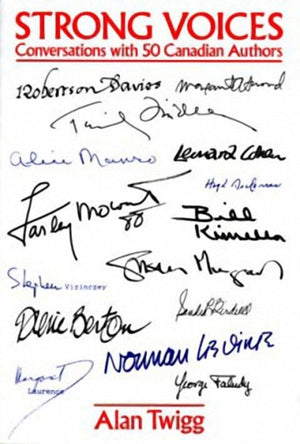 STRONG VOICES
Conversations with 50 Canadian Authors
Robertson Davies Margaret Atwood
Timothy Findley
Alice Munro Leonard Cohen
Hugh MacLennan
Farley Mowat
88
Bill
Kinsella
Susan Musgrave
Stephen
Vizinczey
Sandra Birdsell
Pierre Berton
Norman Levine
Margaret
Laurence
George Faludy
Alan Twigg